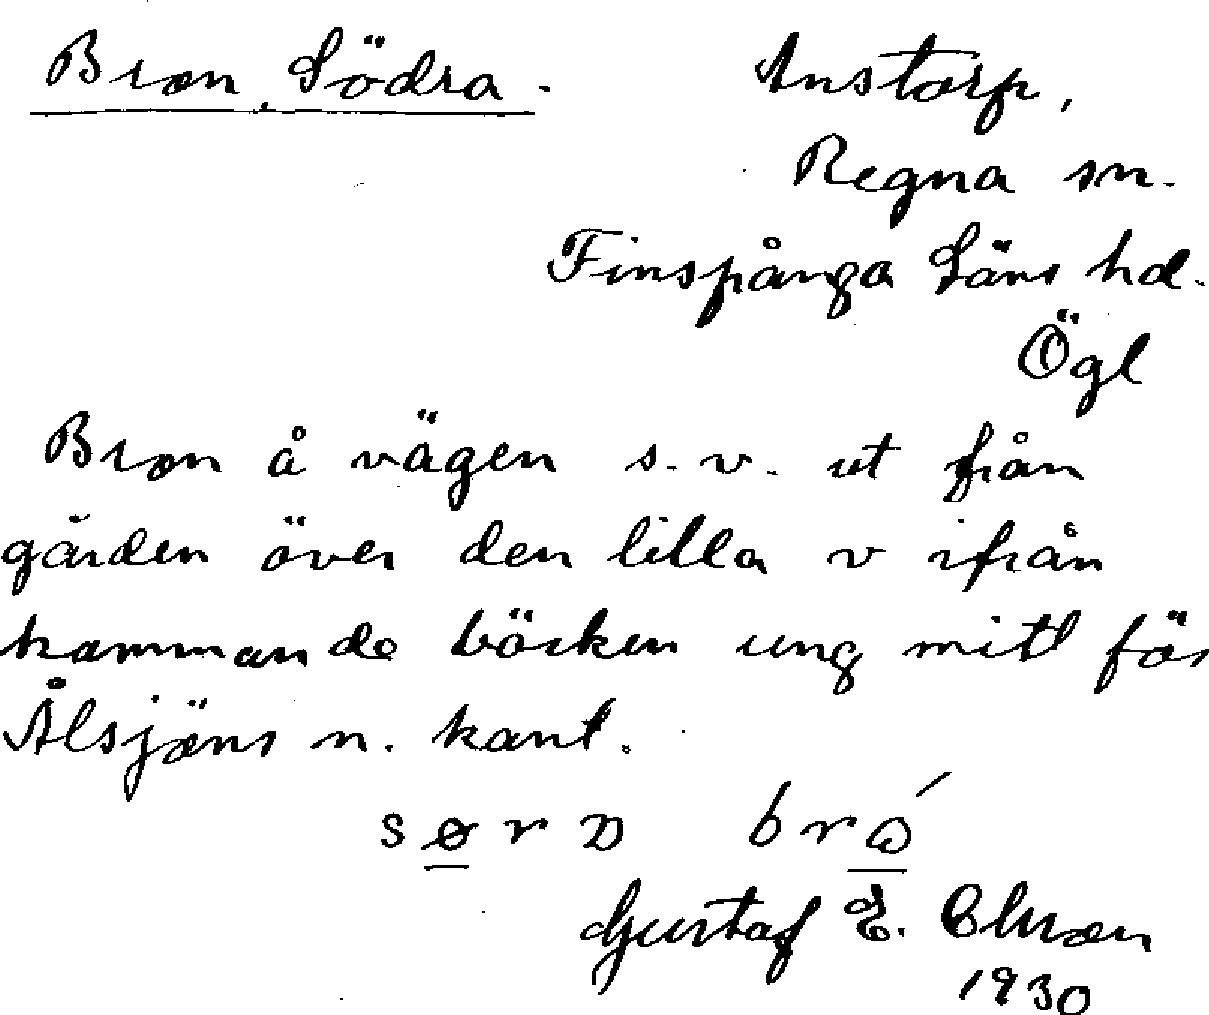 Bron, Södra. Anstorp,
Regna sn.
Finspånga Läns hd.
Ögl
Bron å vägen s.v. ut från
gården över den lilla v ifrån
kommande bäcken ung mitt för
Ålsjöns n. kant.
Gustaf E.
1930